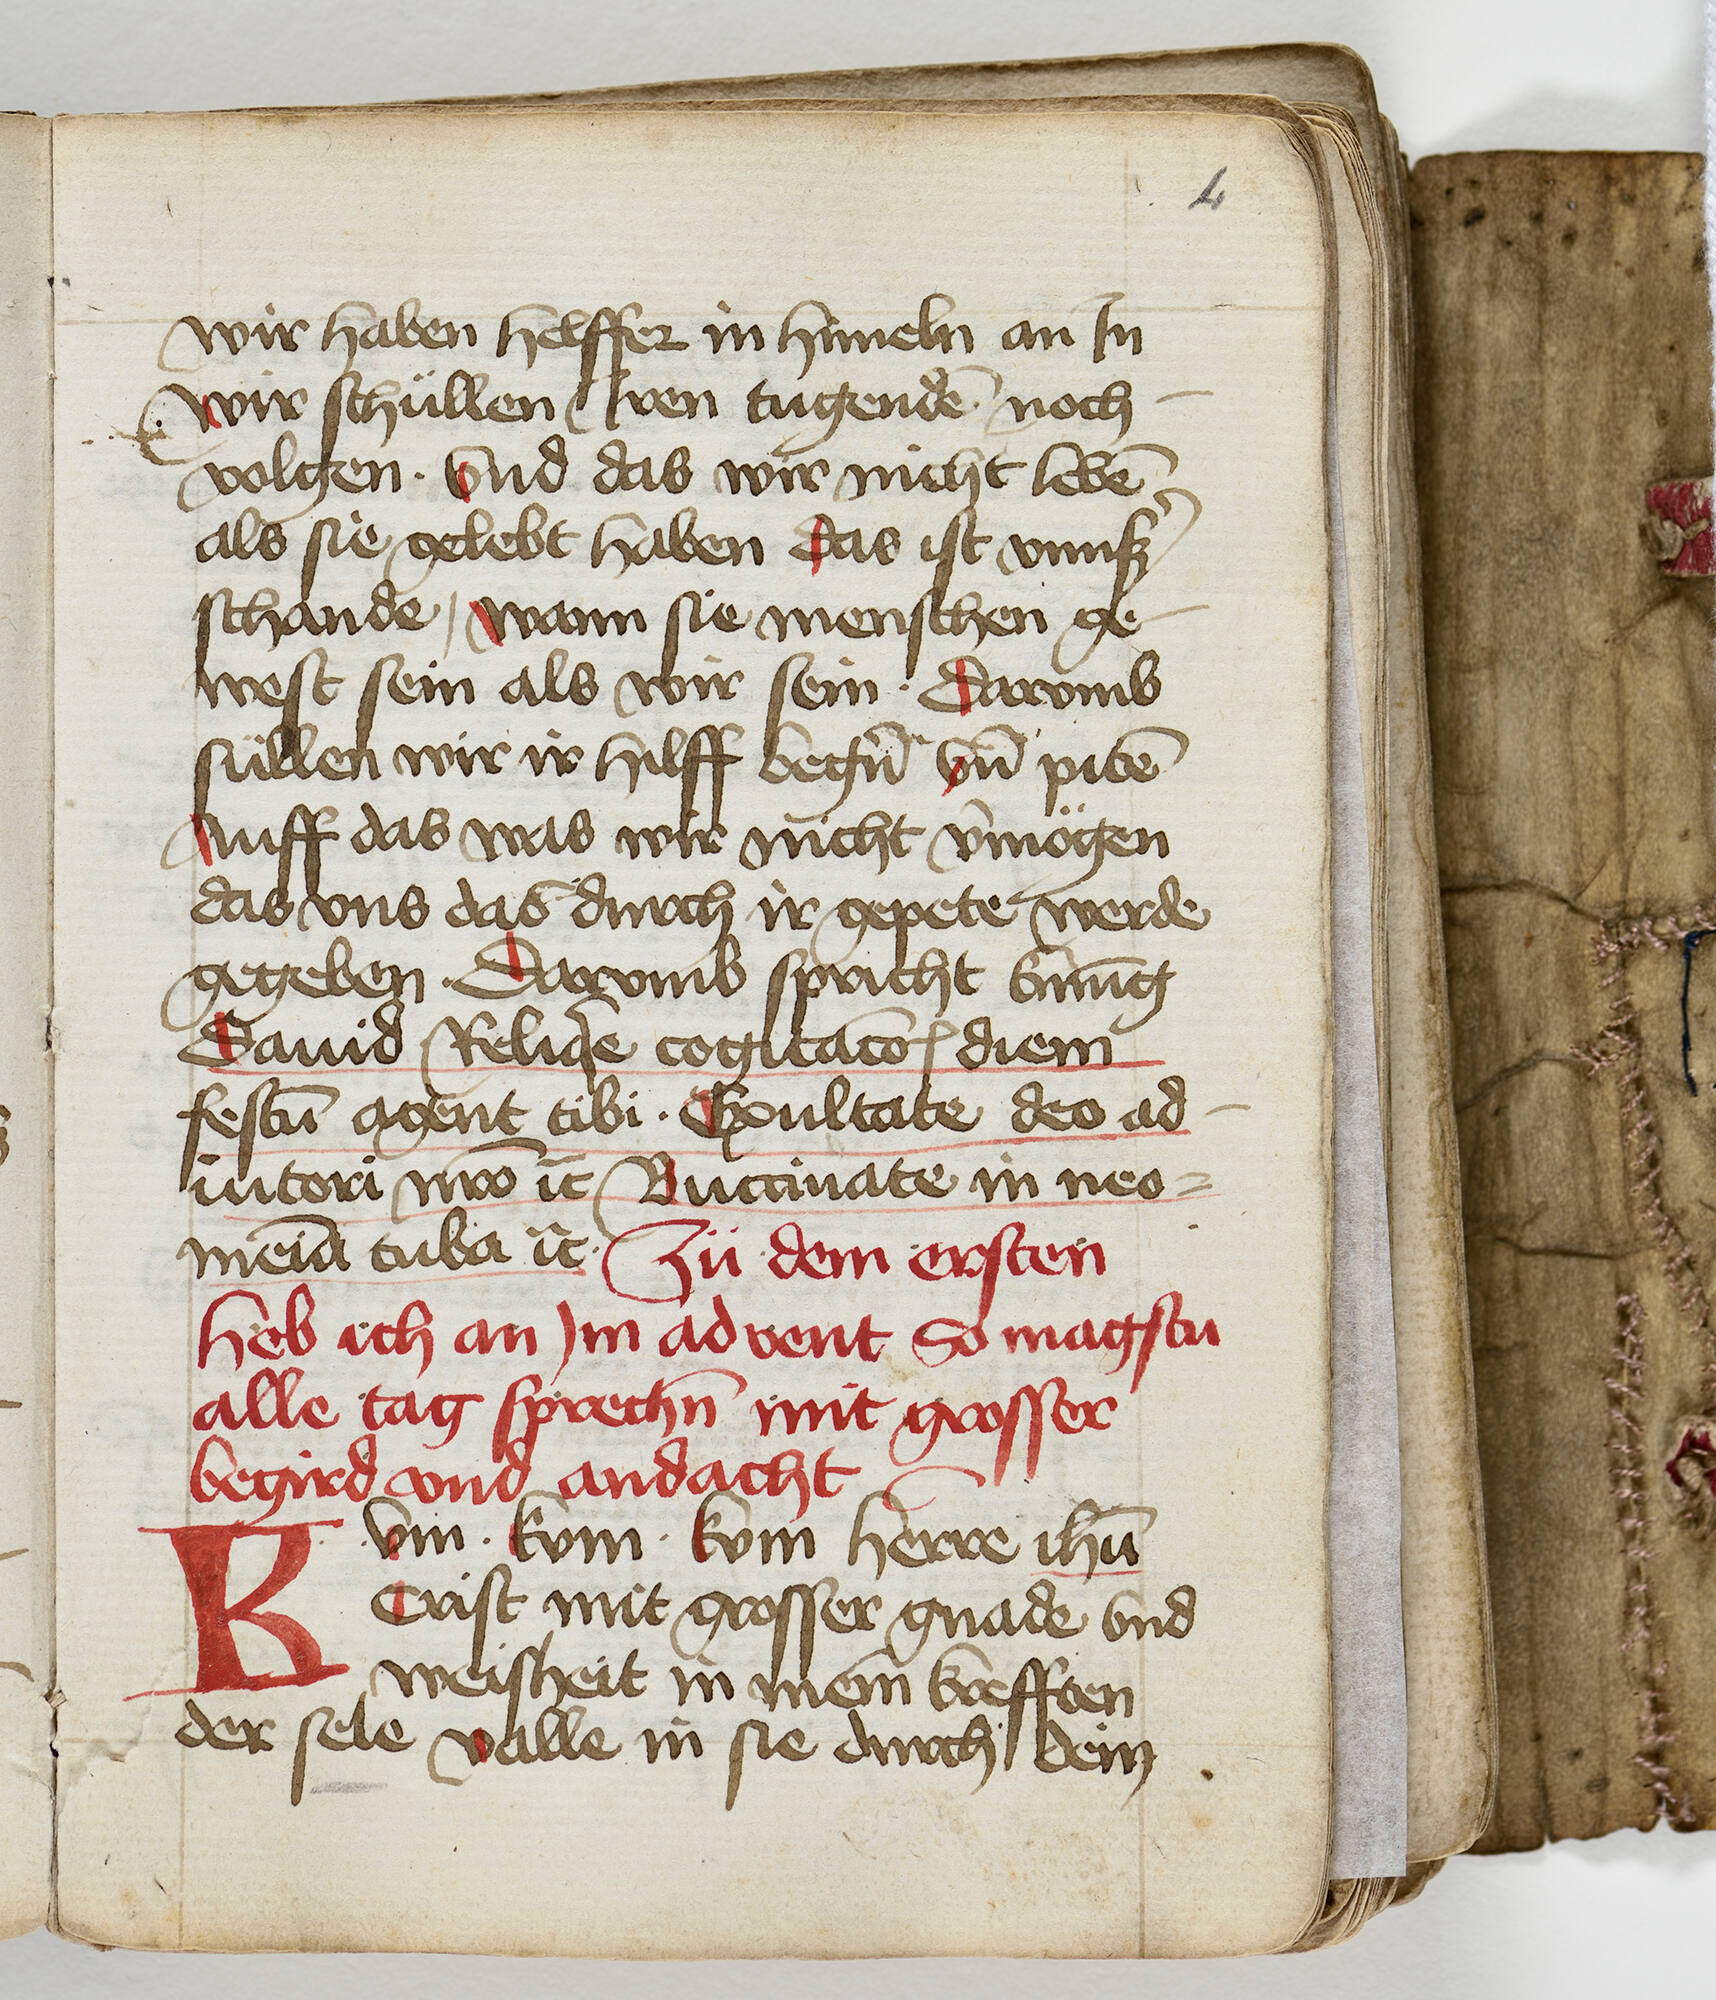 4
wir haben helffer in himeln an In
wir schüllen Iren tugendē noch –
volgen · Vnd das wir nicht lebē
als sie gelebt haben das ist vnnß᷑
schande / wann sie menschen ge–
west sein als wir sein · Darvmb
süllen wir ir hilff begern̄ vn̄ pitē
Auff das was wir nicht v̄mögen
das vns das durch ir gepete werde
gegeben · Darvmb spricht kūnig
Dauid Reliq̄e cogitac̄oꝭ diem
festū agent tibi · Exultate deo ad –
iutori nr̄o ⁊c̄ Buccinate in neo=
meīa tuba ⁊c̄ · Zü dem ersten
heb ich an Jm advent So magstu
alle tag sprechn̄ mit grosser
begird vnd andacht
Kvm · kvm · kvm herre ihū
Crist mit grosser gnade vnd
weisheit in mein̄ krefften
der sele valle in sie durch dein